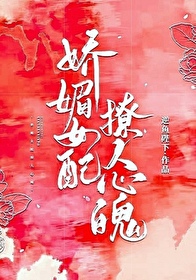 娇媚女配
撩人心魄
陛下 作品